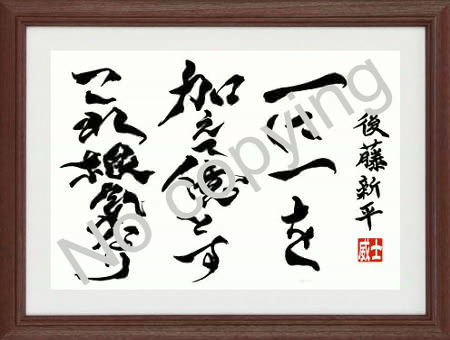 後藤新平
威士
一に一を
加えて億とす
これ根気なり
No copying